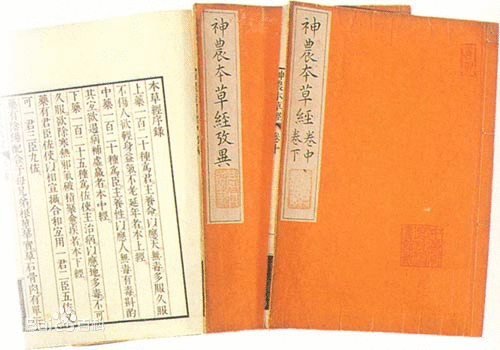 本草經序錄
上藥一百二十種爲君主養命㠯應天無毒多服久服
不傷人欲輕身益氣不老延年者本上經
中藥一百二十種爲臣主養性㠯應人無毒有毒斟酌
其宜欲遏病補虛羸者本中經
下藥一百二十五種爲佐使主治病㠯應地多毒不可
久服欲除寒熱邪氣破積聚愈疾者本下經
藥有君臣佐使㠯相宣攝合和宜用一君二臣五佐
可一君三臣九佐
藥有陰陽配合子母兄弟根莖華實草石骨肉有單
神農本草經攷異
神農本草經 卷中
卷下
Bai百科